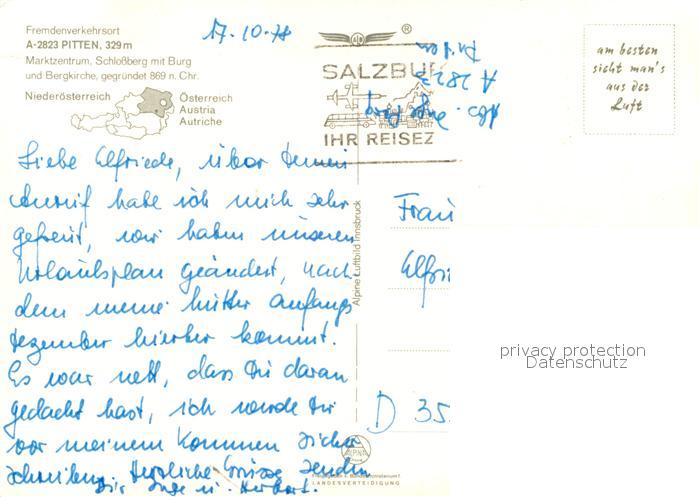 Fremdenverkehrsort
A-2823 PITTEN, 329 m
Marktzentrum, Schloßberg mit Burg
und Bergkirche, gegründet 869 n. Chr.
Niederösterreich
Österreich
Austria
Autriche
17.10.78
®
SALZBU
IHR REISEZ
A 2823
Pitten
am besten
sieht man's
aus der
Luft
Liebe Elfriede, über deinen
Anruf habe ich mich sehr
gefreut, wir haben unseren
Urlaubsplan geändert, nach
dem meine Mutter anfangs
Dezember hierher kommt.
Es war nett, dass Du daran
gedacht hast, ich werde Dir
vor meinem Kommen sicher
schreiben. Herzliche Grüsse senden
Dir Inge u. Herbert.
Alpine Luftbild Innsbruck
Frau
Elfri
D 35
privacy protection
Datenschutz
ALPINE
LANDESVERTEIDIGUNG